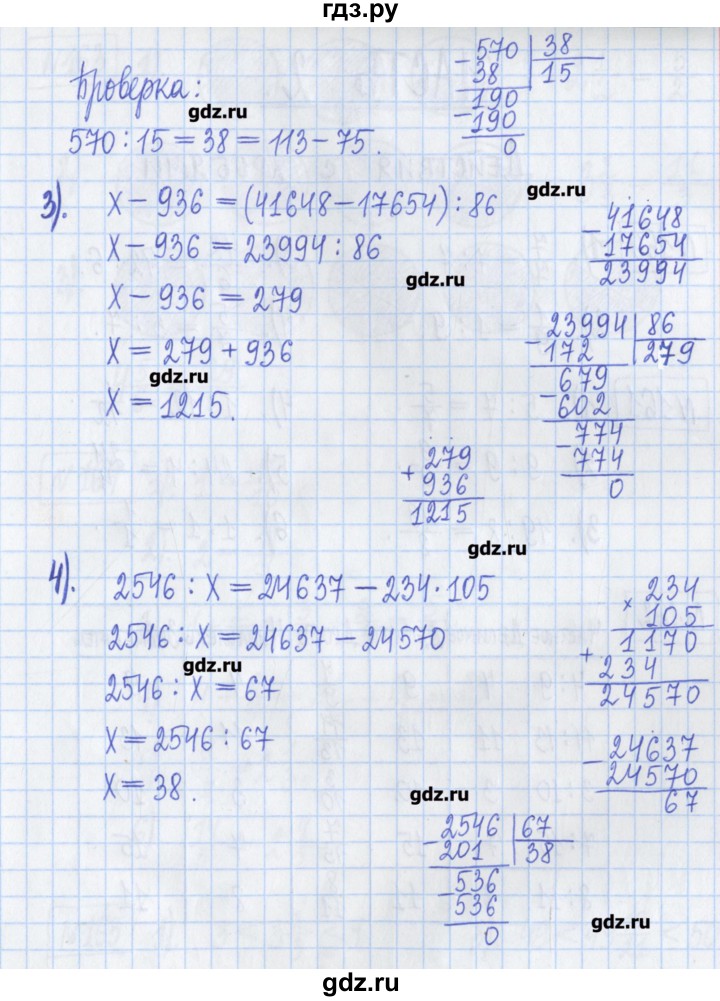 гдз.ру
Проверка:
570 : 15 = 38 = 113 - 75.
570 38
- 38 15
190
- 190
0
gdz.ru
gdz.ru
3). X - 936 = (41648 - 17654) : 86
X - 936 = 23994 : 86
X - 936 = 279
X = 279 + 936
X = 1215.
gdz.ru
gdz.ru
- 41648
17654
23994
- 23994 86
172 279
679
- 602
774
- 774
0
279
+ 936
1215
gdz.ru
4). 2546 : X = 24637 - 234 · 105
2546 : X = 24637 - 24570
2546 : X = 67
X = 2546 : 67
X = 38.
gdz.ru
234
× 105
1170
+ 234
24570
- 24637
24570
67
gdz.ru
- 2546 67
201 38
536
- 536
0
gdz.ru
gdz.ru